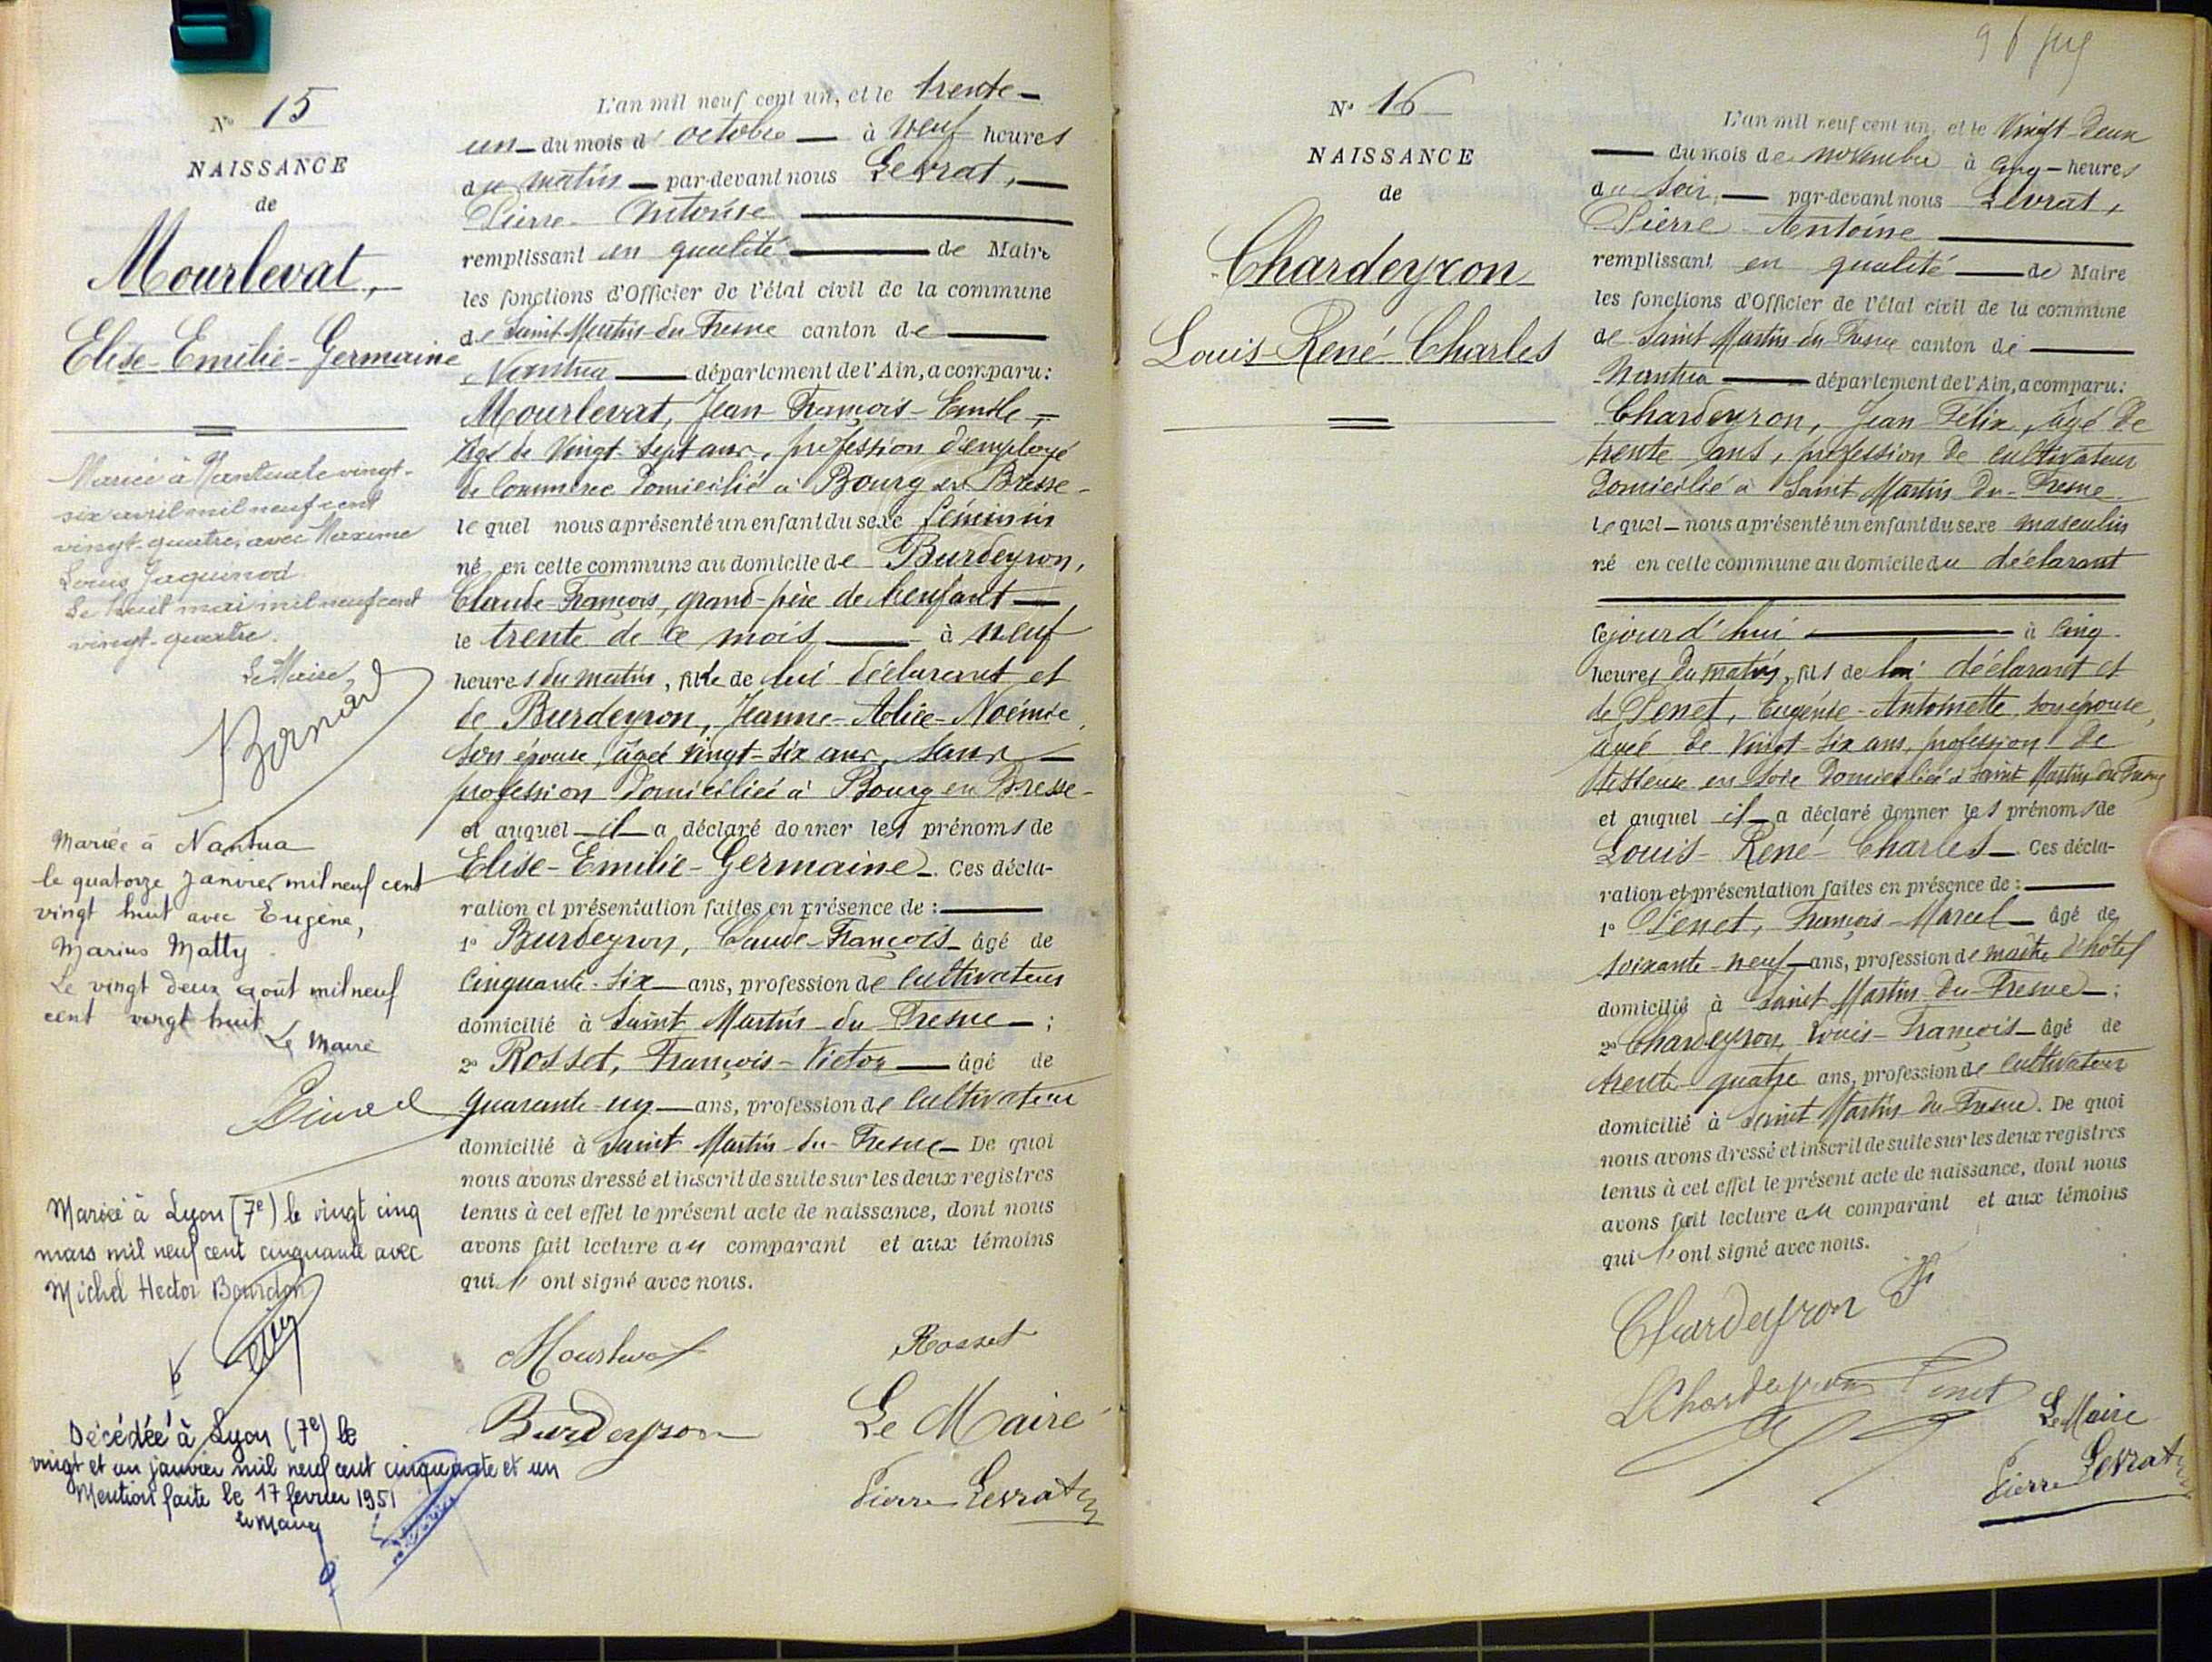 N° 15
NAISSANCE
de
Mourlevat,
Elise-Emilie-Germaine
Mariée à Nantua le vingt-
six avril mil neuf cent
vingt-quatre, avec Maxime
Louis Jaquinod
Le huit mai mil neuf cent
vingt-quatre.
Le Maire,
Mariée à Nantua
le quatorze janvier mil neuf cent
vingt huit avec Eugène,
Marius Matty.
Le vingt deux août mil neuf
cent vingt huit
Le Maire
Mariée à Lyon (7e) le vingt cinq
mars mil neuf cent cinquante avec
Michel Hector Bourdon
Décédée à Lyon (7e) le
vingt et un janvier mil neuf cent cinquante et un
Mention faite le 17 février 1951
Le Maire
L'an mil neuf cent un, et le trente-
un du mois d'octobre à neuf heures
du matin par-devant nous Levrat,
Pierre-Antoine
remplissant en qualité de Maire
les fonctions d'Officier de l'état civil de la commune
de Saint-Martin-du-Fresne canton de
Nantua département de l'Ain, a comparu:
Mourlevat, Jean-François-Emile,
âgé de vingt-sept ans, profession d'employé
de commerce domicilié à Bourg en Bresse
lequel nous a présenté un enfant du sexe féminin
né en cette commune au domicile de Burdeyron,
Claude-François, grand-père de l'enfant
le trente de ce mois à neuf
heures du matin, fille de lui déclarant et
de Burdeyron, Jeanne-Adice-Noémie,
son épouse, âgée vingt-six ans, sans
profession domiciliée à Bourg en Bresse
et auquel il a déclaré donner les prénoms de
Elise-Emilie-Germaine. Ces décla-
ration et présentation faites en présence de :
1° Burdeyron, Claude-François âgé de
cinquante-six ans, profession de cultivateur
domicilié à Saint Martin-du Fresne ;
2° Rosset, François-Victor âgé de
quarante-un ans, profession de cultivateur
domicilié à Saint Martin-du-Fresne De quoi
nous avons dressé et inscrit de suite sur les deux registres
tenus à cet effet le présent acte de naissance, dont nous
avons fait lecture au comparant et aux témoins
qui l'ont signé avec nous.
Mourlevat Rosset
Burdeyron Le Maire
Pierre Levrat
N° 16
NAISSANCE
de
Chardeyron
Louis-René-Charles
L'an mil neuf cent un, et le vingt-deux
du mois de novembre à cinq heures
du soir, par-devant nous Levrat,
Pierre Antoine
remplissant en qualité de Maire
les fonctions d'Officier de l'état civil de la commune
de Saint Martin du Fresne canton de
Nantua département de l'Ain, a comparu:
Chardeyron, Jean Félix, âgé de
trente ans, profession de cultivateur
domicilié à Saint Martin du-Fresne
lequel nous a présenté un enfant du sexe masculin
né en cette commune au domicile du déclarant
cejourd'hui à cinq
heures du matin, fils de lui déclarant et
de Penet, Eugénie-Antoinette, son épouse,
âgée de vingt-six ans, profession de
tisseuse en soie domiciliée à Saint Martin du Fresne
et auquel il a déclaré donner les prénoms de
Louis-René-Charles. Ces décla-
ration et présentation faites en présence de :
1° Penet, François-Marcel âgé de
soixante-neuf ans, profession de maître d'hôtel
domicilié à Saint Martin du Fresne ;
2° Chardeyron, Louis-François âgé de
trente quatre ans, profession de cultivateur
domicilié à Saint Martin-du-Fresne. De quoi
nous avons dressé et inscrit de suite sur les deux registres
tenus à cet effet le présent acte de naissance, dont nous
avons fait lecture au comparant et aux témoins
qui l'ont signé avec nous.
Chardeyron
LChardeyron Penet
Le Maire
Pierre Levrat